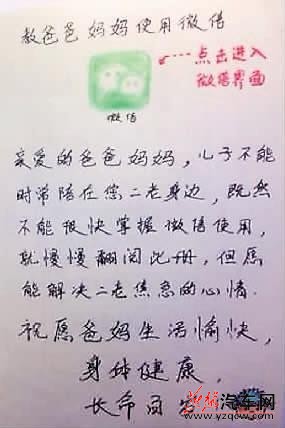 教爸爸妈妈使用微信
点击进入
微信界面
微信
亲爱的爸爸妈妈，儿子不能
时常陪在您二老身边，既然
不能很快掌握微信使用，
就慢慢翻阅此册，但愿
能解决二老焦急的心情.
祝愿爸妈生活愉快，
身体健康，
长命百岁
汽车网
www.yzqcw.com